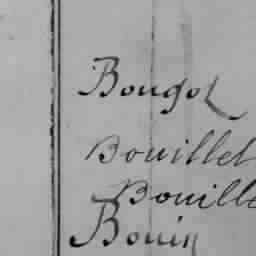 Bougot
Bouillet
Bouille
Bouin